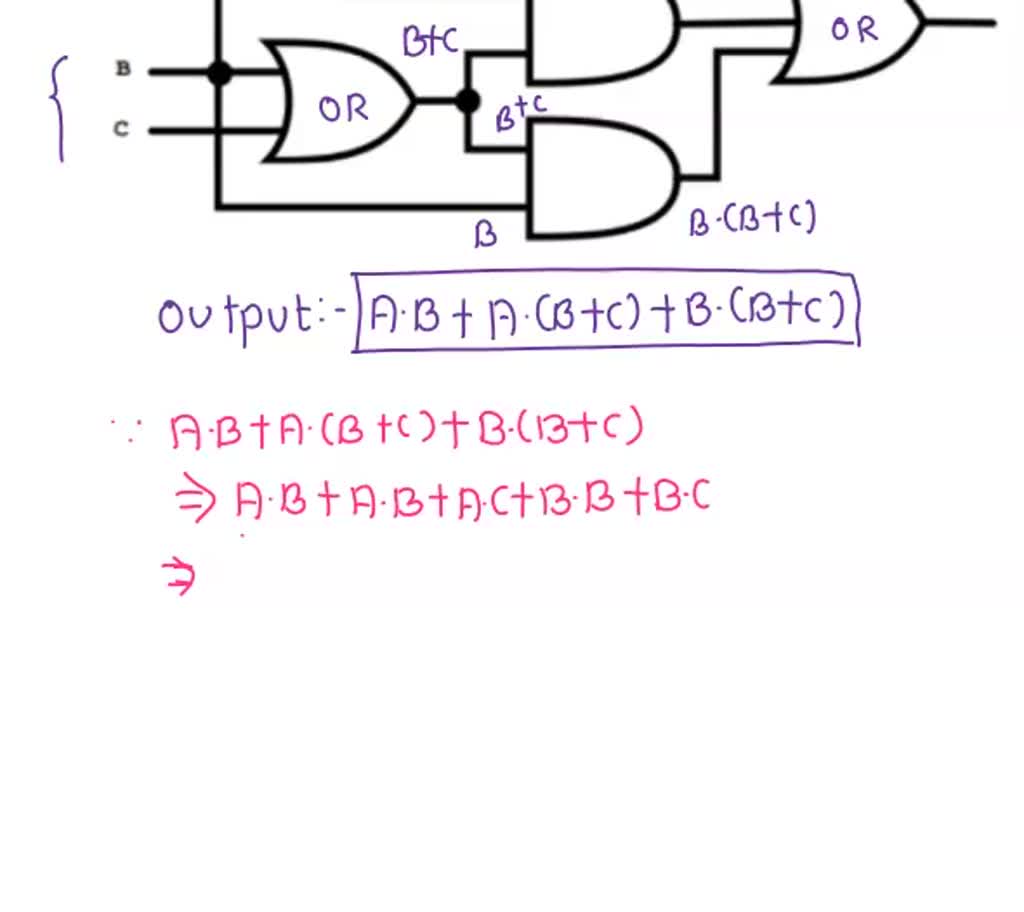 B+C
OR
B
OR
C
B+C
B
B·(B+C)
Output:- A·B + A·(B+C) + B·(B+C)
∵ A·B + A·(B+C) + B·(B+C)
⇒ A·B + A·B + A·C + B·B + B·C
⇒